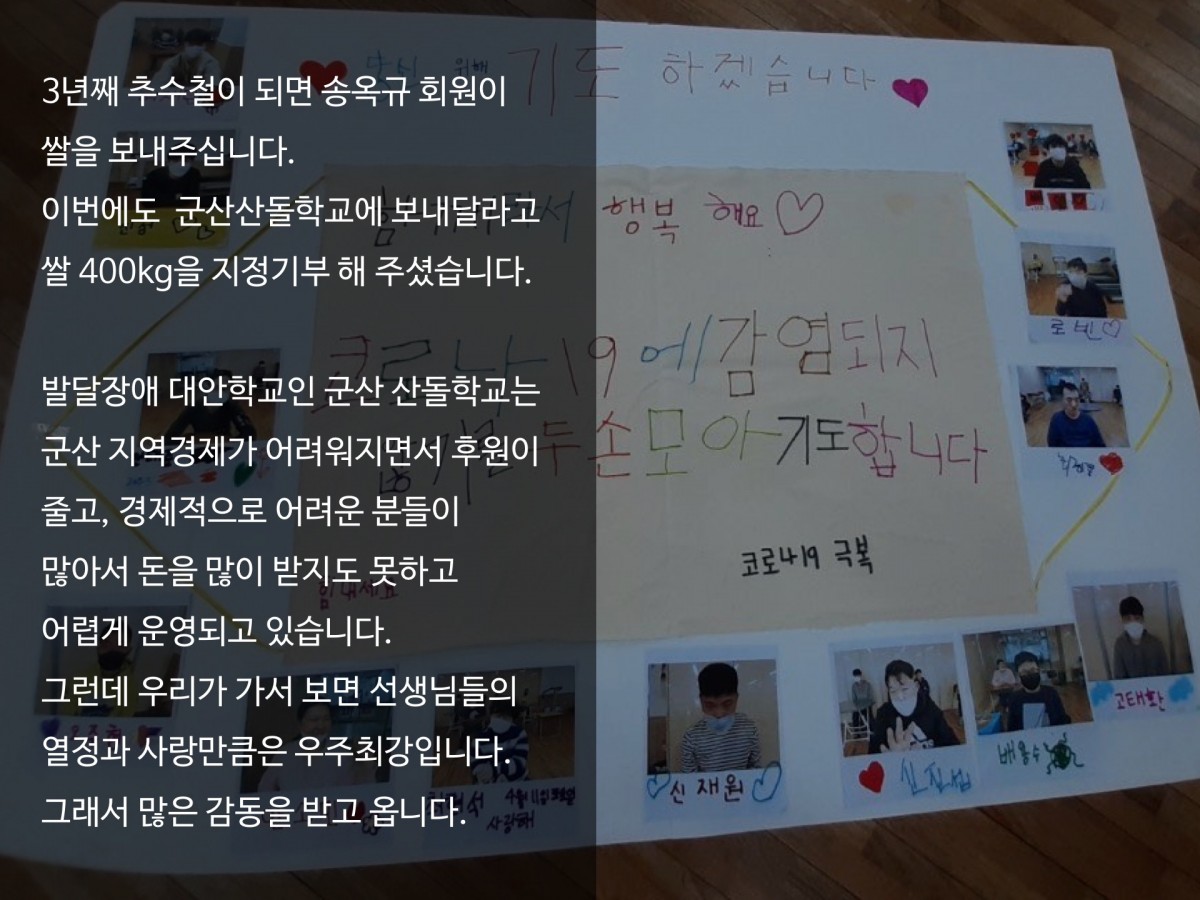 3년째 추수철이 되면 송옥규 회원이
쌀을 보내주십니다.
이번에도 군산산돌학교에 보내달라고
쌀 400kg을 지정기부 해 주셨습니다.
발달장애 대안학교인 군산 산돌학교는
군산 지역경제가 어려워지면서 후원이
줄고, 경제적으로 어려운 분들이
많아서 돈을 많이 받지도 못하고
어렵게 운영되고 있습니다.
그런데 우리가 가서 보면 선생님들의
열정과 사랑만큼은 우주최강입니다.
그래서 많은 감동을 받고 옵니다.
위해 기도 하겠습니다
행복 해요
코로나19에 감염되지
두손모아 기도합니다
코로나19 극복
힘내세요
로빈
신재원
신진섭
배용수
고태환
사랑해